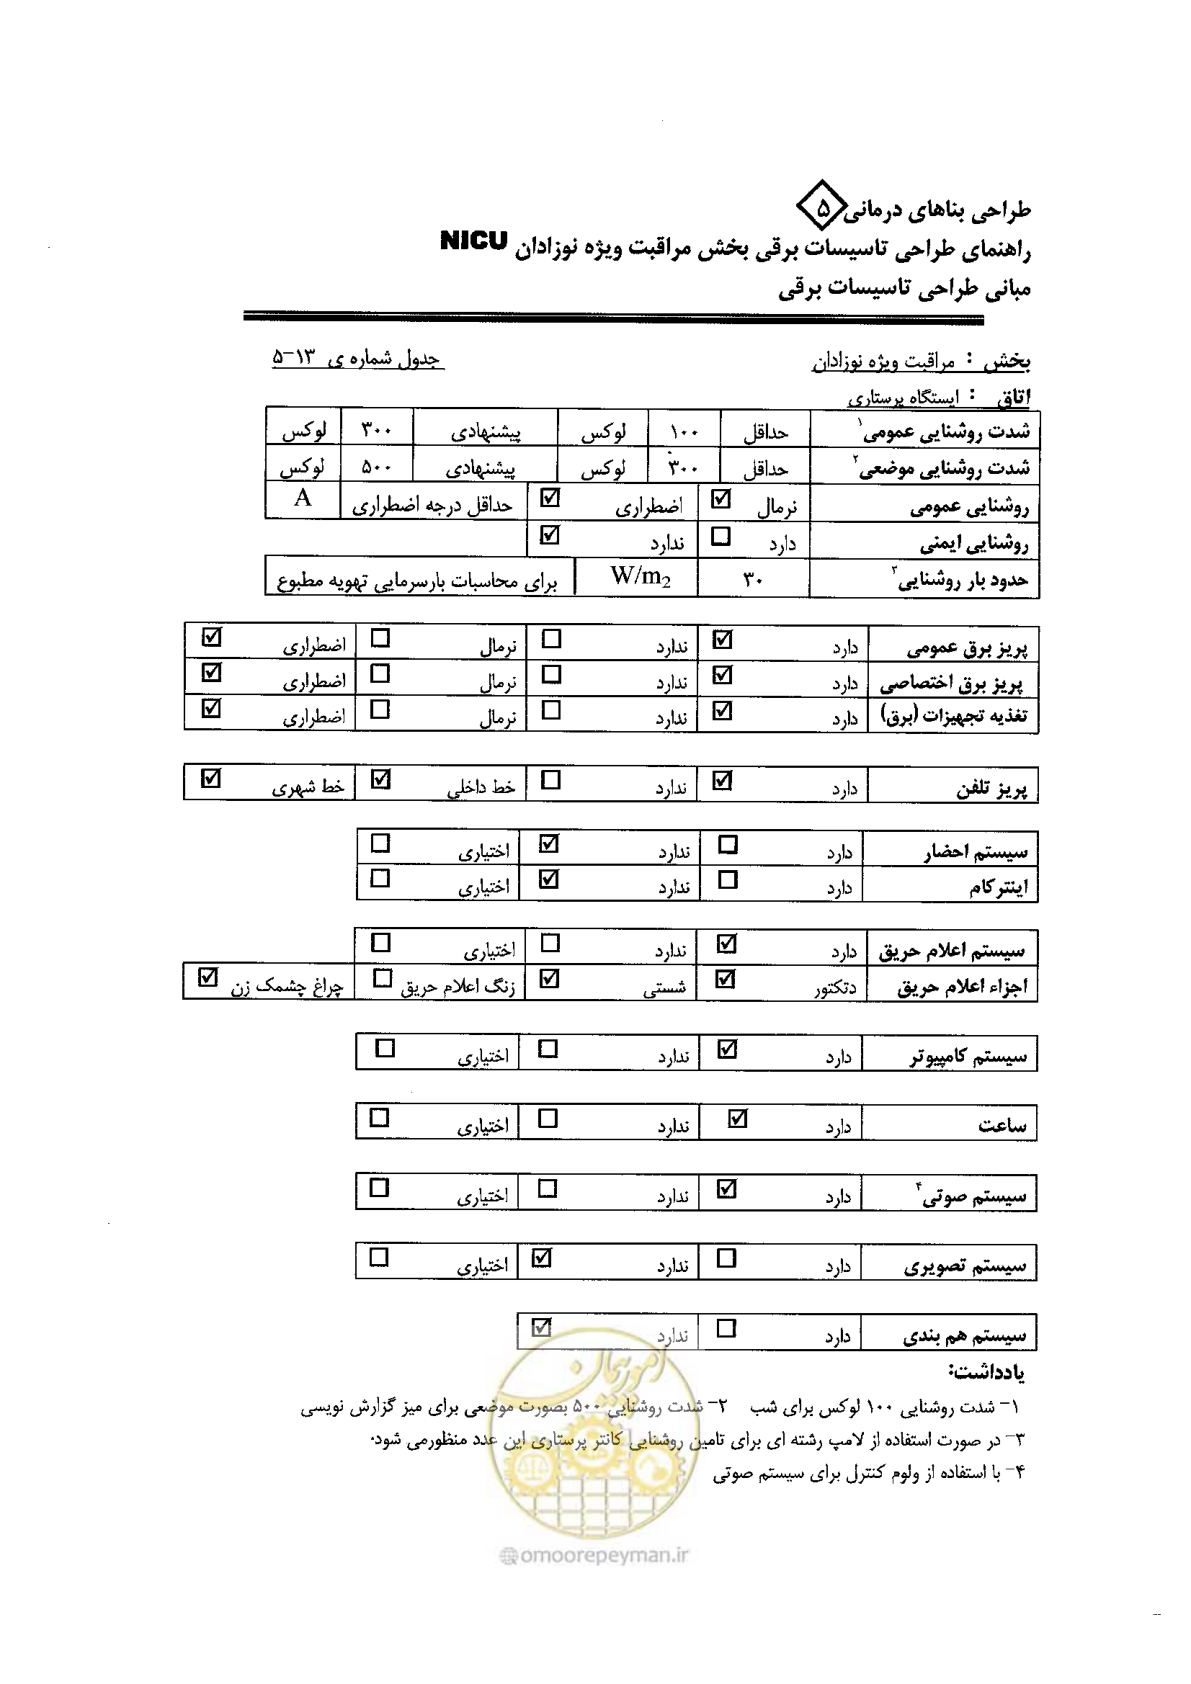 طراحی بناهای درمانی ۵
راهنمای طراحی تاسیسات برقی بخش مراقبت ویژه نوزادان NICU
مبانی طراحی تاسیسات برقی
بخش : مراقبت ویژه نوزادان جدول شماره ی ۱۳-۵
اتاق : ایستگاه پرستاری
شدت روشنایی عمومی۱ حداقل ۱۰۰ لوکس پیشنهادی ۳۰۰ لوکس
شدت روشنایی موضعی۲ حداقل ۳۰۰ لوکس پیشنهادی ۵۰۰ لوکس
روشنایی عمومی نرمال ☑ اضطراری ☑ حداقل درجه اضطراری A
روشنایی ایمنی دارد ☐ ندارد ☑
حدود بار روشنایی۳ ۳۰ W/m2 برای محاسبات بارسرمایی تهویه مطبوع
پریز برق عمومی دارد ☑ ندارد ☐ نرمال ☐ اضطراری ☑
پریز برق اختصاصی دارد ☑ ندارد ☐ نرمال ☐ اضطراری ☑
تغذیه تجهیزات (برق) دارد ☑ ندارد ☐ نرمال ☐ اضطراری ☑
پریز تلفن دارد ☑ ندارد ☐ خط داخلی ☑ خط شهری ☑
سیستم احضار دارد ☐ ندارد ☑ اختیاری ☐
اینترکام دارد ☐ ندارد ☑ اختیاری ☐
سیستم اعلام حریق دارد ☑ ندارد ☐ اختیاری ☐
اجزاء اعلام حریق دتکتور ☑ شستی ☑ زنگ اعلام حریق ☐ چراغ چشمک زن ☑
سیستم کامپیوتر دارد ☑ ندارد ☐ اختیاری ☐
ساعت دارد ☑ ندارد ☐ اختیاری ☐
سیستم صوتی۴ دارد ☑ ندارد ☐ اختیاری ☐
سیستم تصویری دارد ☐ ندارد ☑ اختیاری ☐
سیستم هم بندی دارد ☐ ندارد ☑
یادداشت:
۱- شدت روشنایی ۱۰۰ لوکس برای شب ۲- شدت روشنایی ۵۰۰ بصورت موضعی برای میز گزارش نویسی
۳- در صورت استفاده از لامپ رشته ای برای تامین روشنایی کانتر پرستاری این عدد منظورمی شود.
۴- با استفاده از ولوم کنترل برای سیستم صوتی
امور پیمان
omoorepeyman.ir